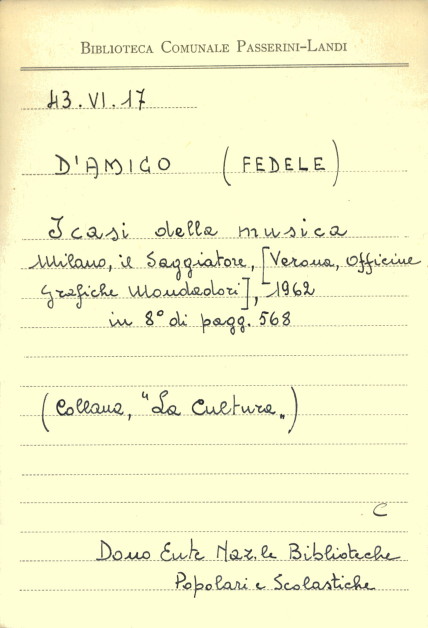 BIBLIOTECA COMUNALE PASSERINI-LANDI
43.VI.17
D'AMICO (FEDELE)
I casi della musica
Milano, il Saggiatore, [Verona, Officine
Grafiche Mondadori], 1962
in 8° di pagg. 568
(Collana, "La Cultura„)
C
Dono Ente Naz.le Biblioteche
Popolari e Scolastiche